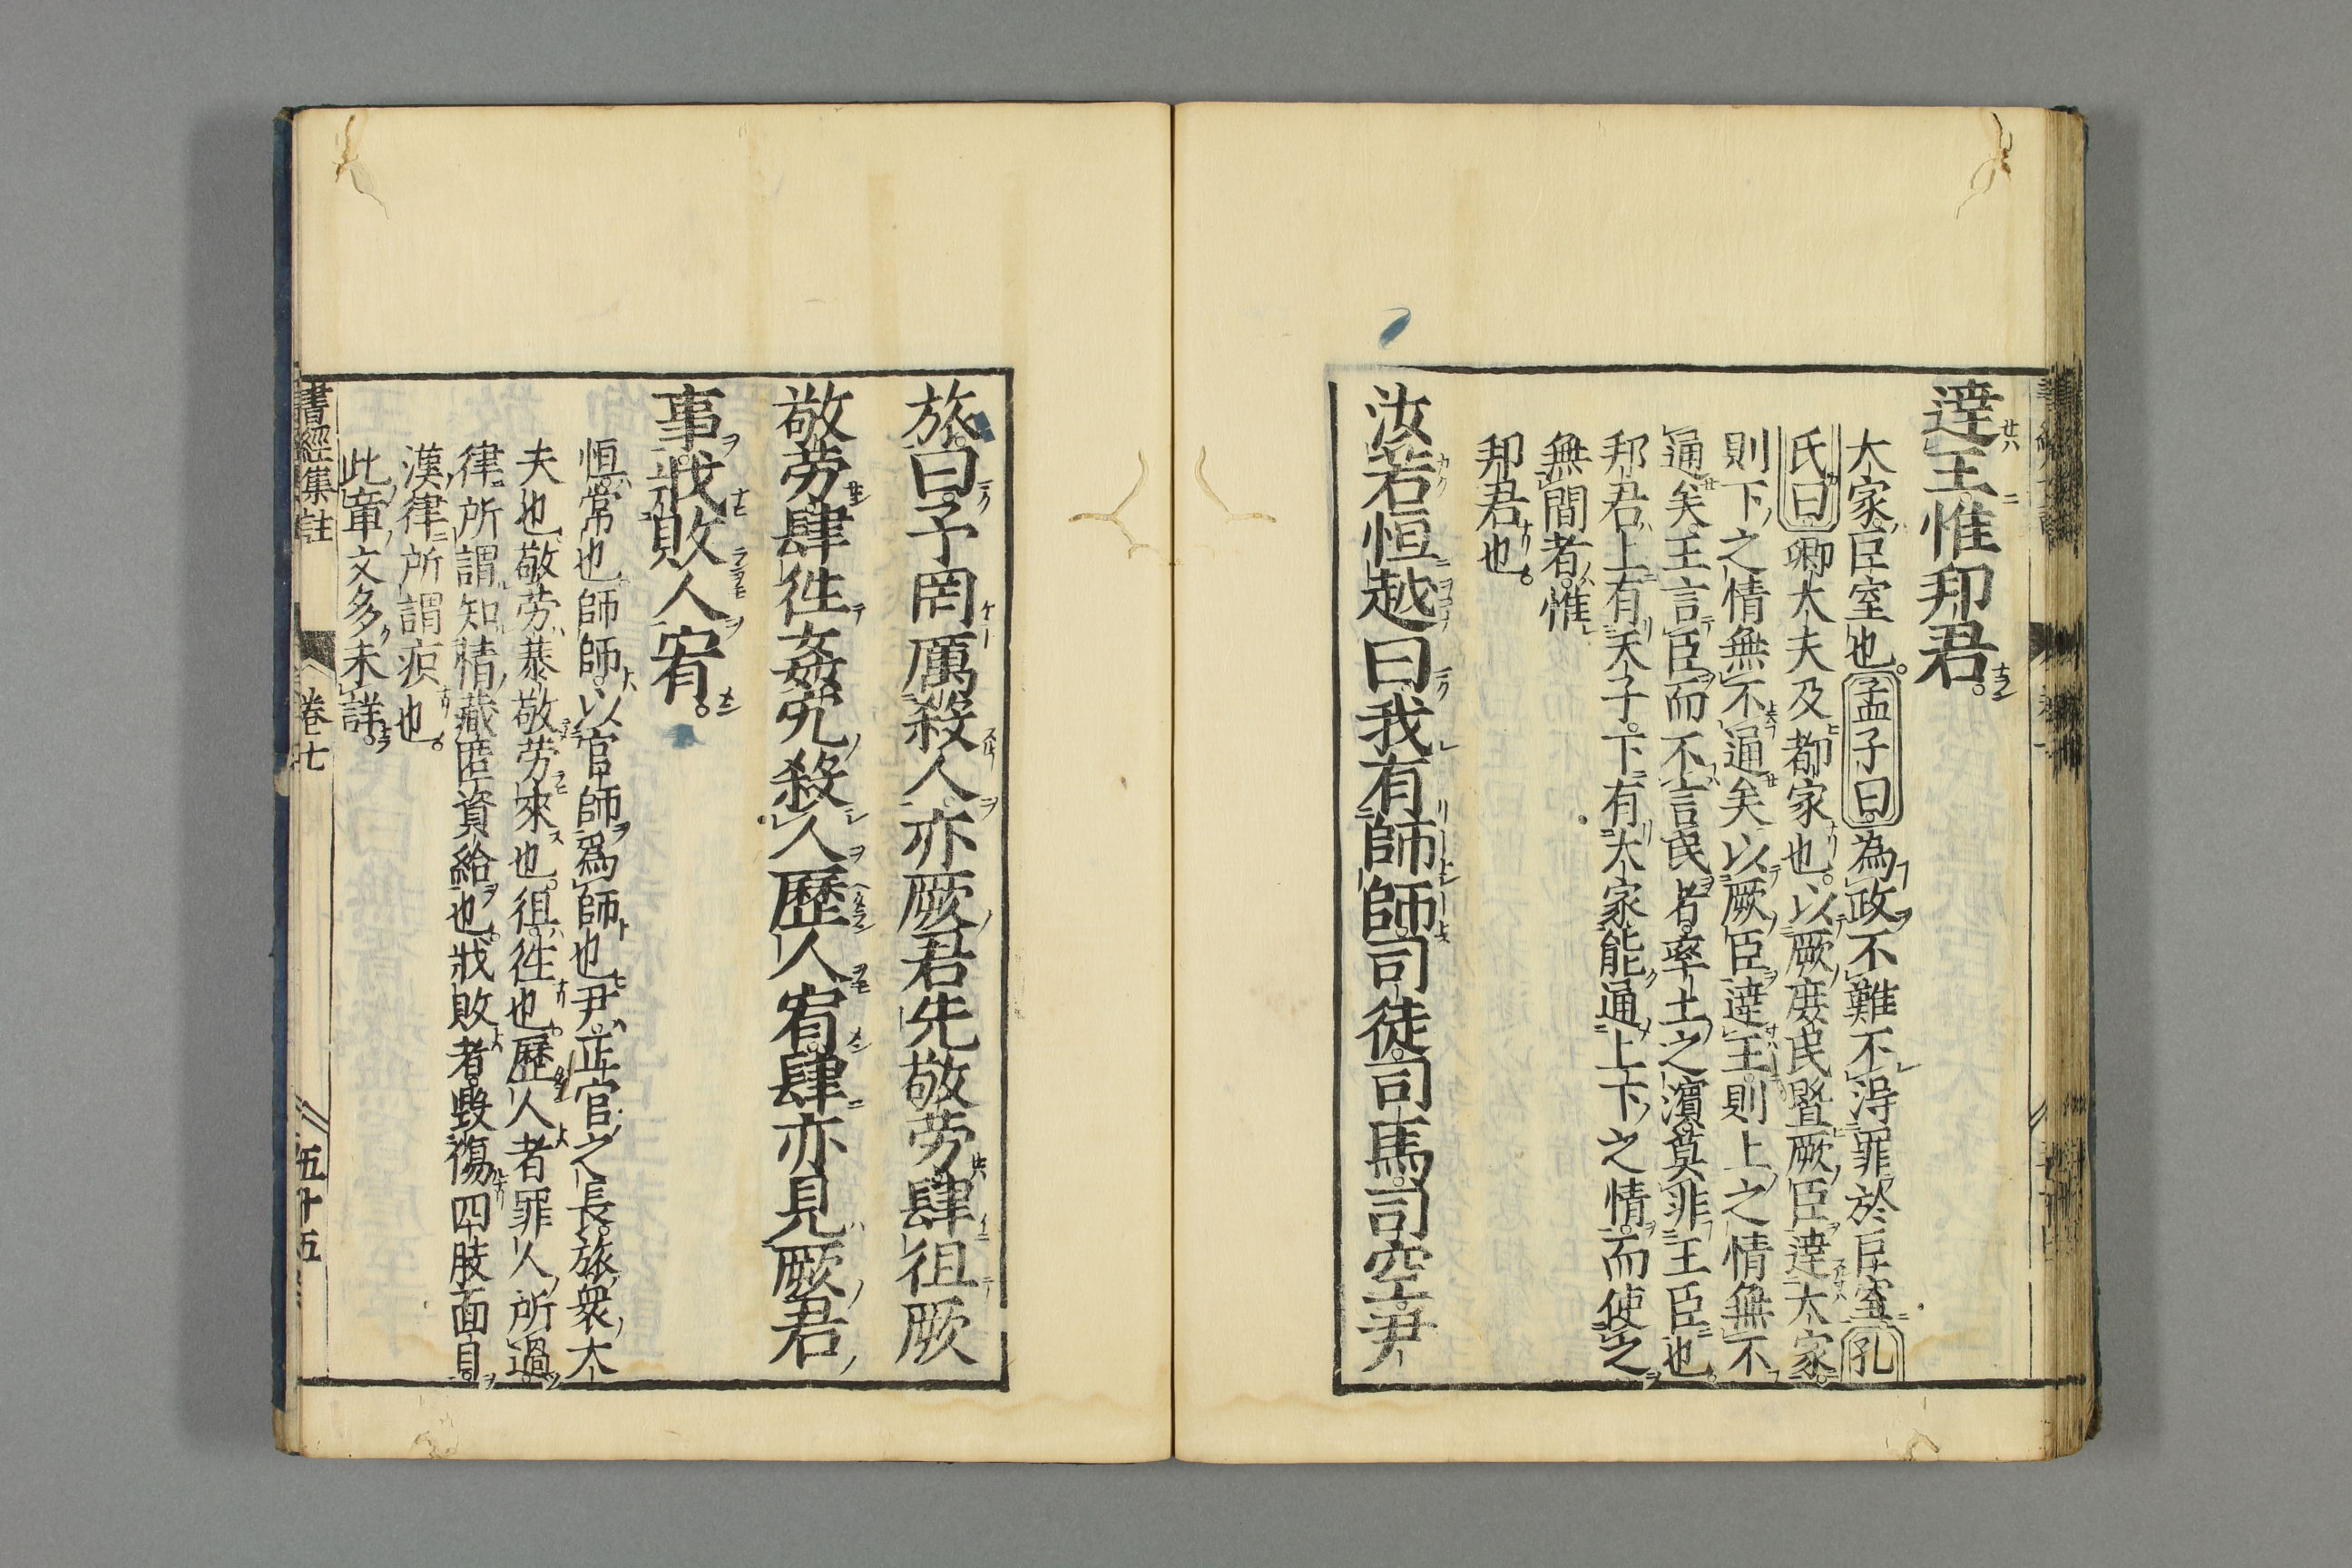 達王惟邦君。
大家臣室也。孟子曰為政不難不得罪於臣室孔
氏曰卿大夫及都家也。以厥庶民曁厥臣達大家。
則下之情無不通矣以厥臣達王則上之情無不
通矣王言臣而不言民者率土之濱莫非王臣也。
邦君上有天子。下有大家能通上下之情而使之
無間者惟
邦君也。
汝若恒越曰我有師師司徒司馬司空尹
旅曰予罔厲殺人亦厥君先敬勞肆徂厥
敬勞肆徃姦宄殺人歷人宥肆亦見厥君
事戕敗人宥。
恒常也師師以官師爲師也尹正官之長旅衆大
夫也敬勞恭敬勞來也。徂徃也歷人者罪人所過
律所謂知情藏匿資給也。戕敗者毀傷四肢面目
漢律所謂疻也。
此章文多未詳。
書經集註
卷七
五十五